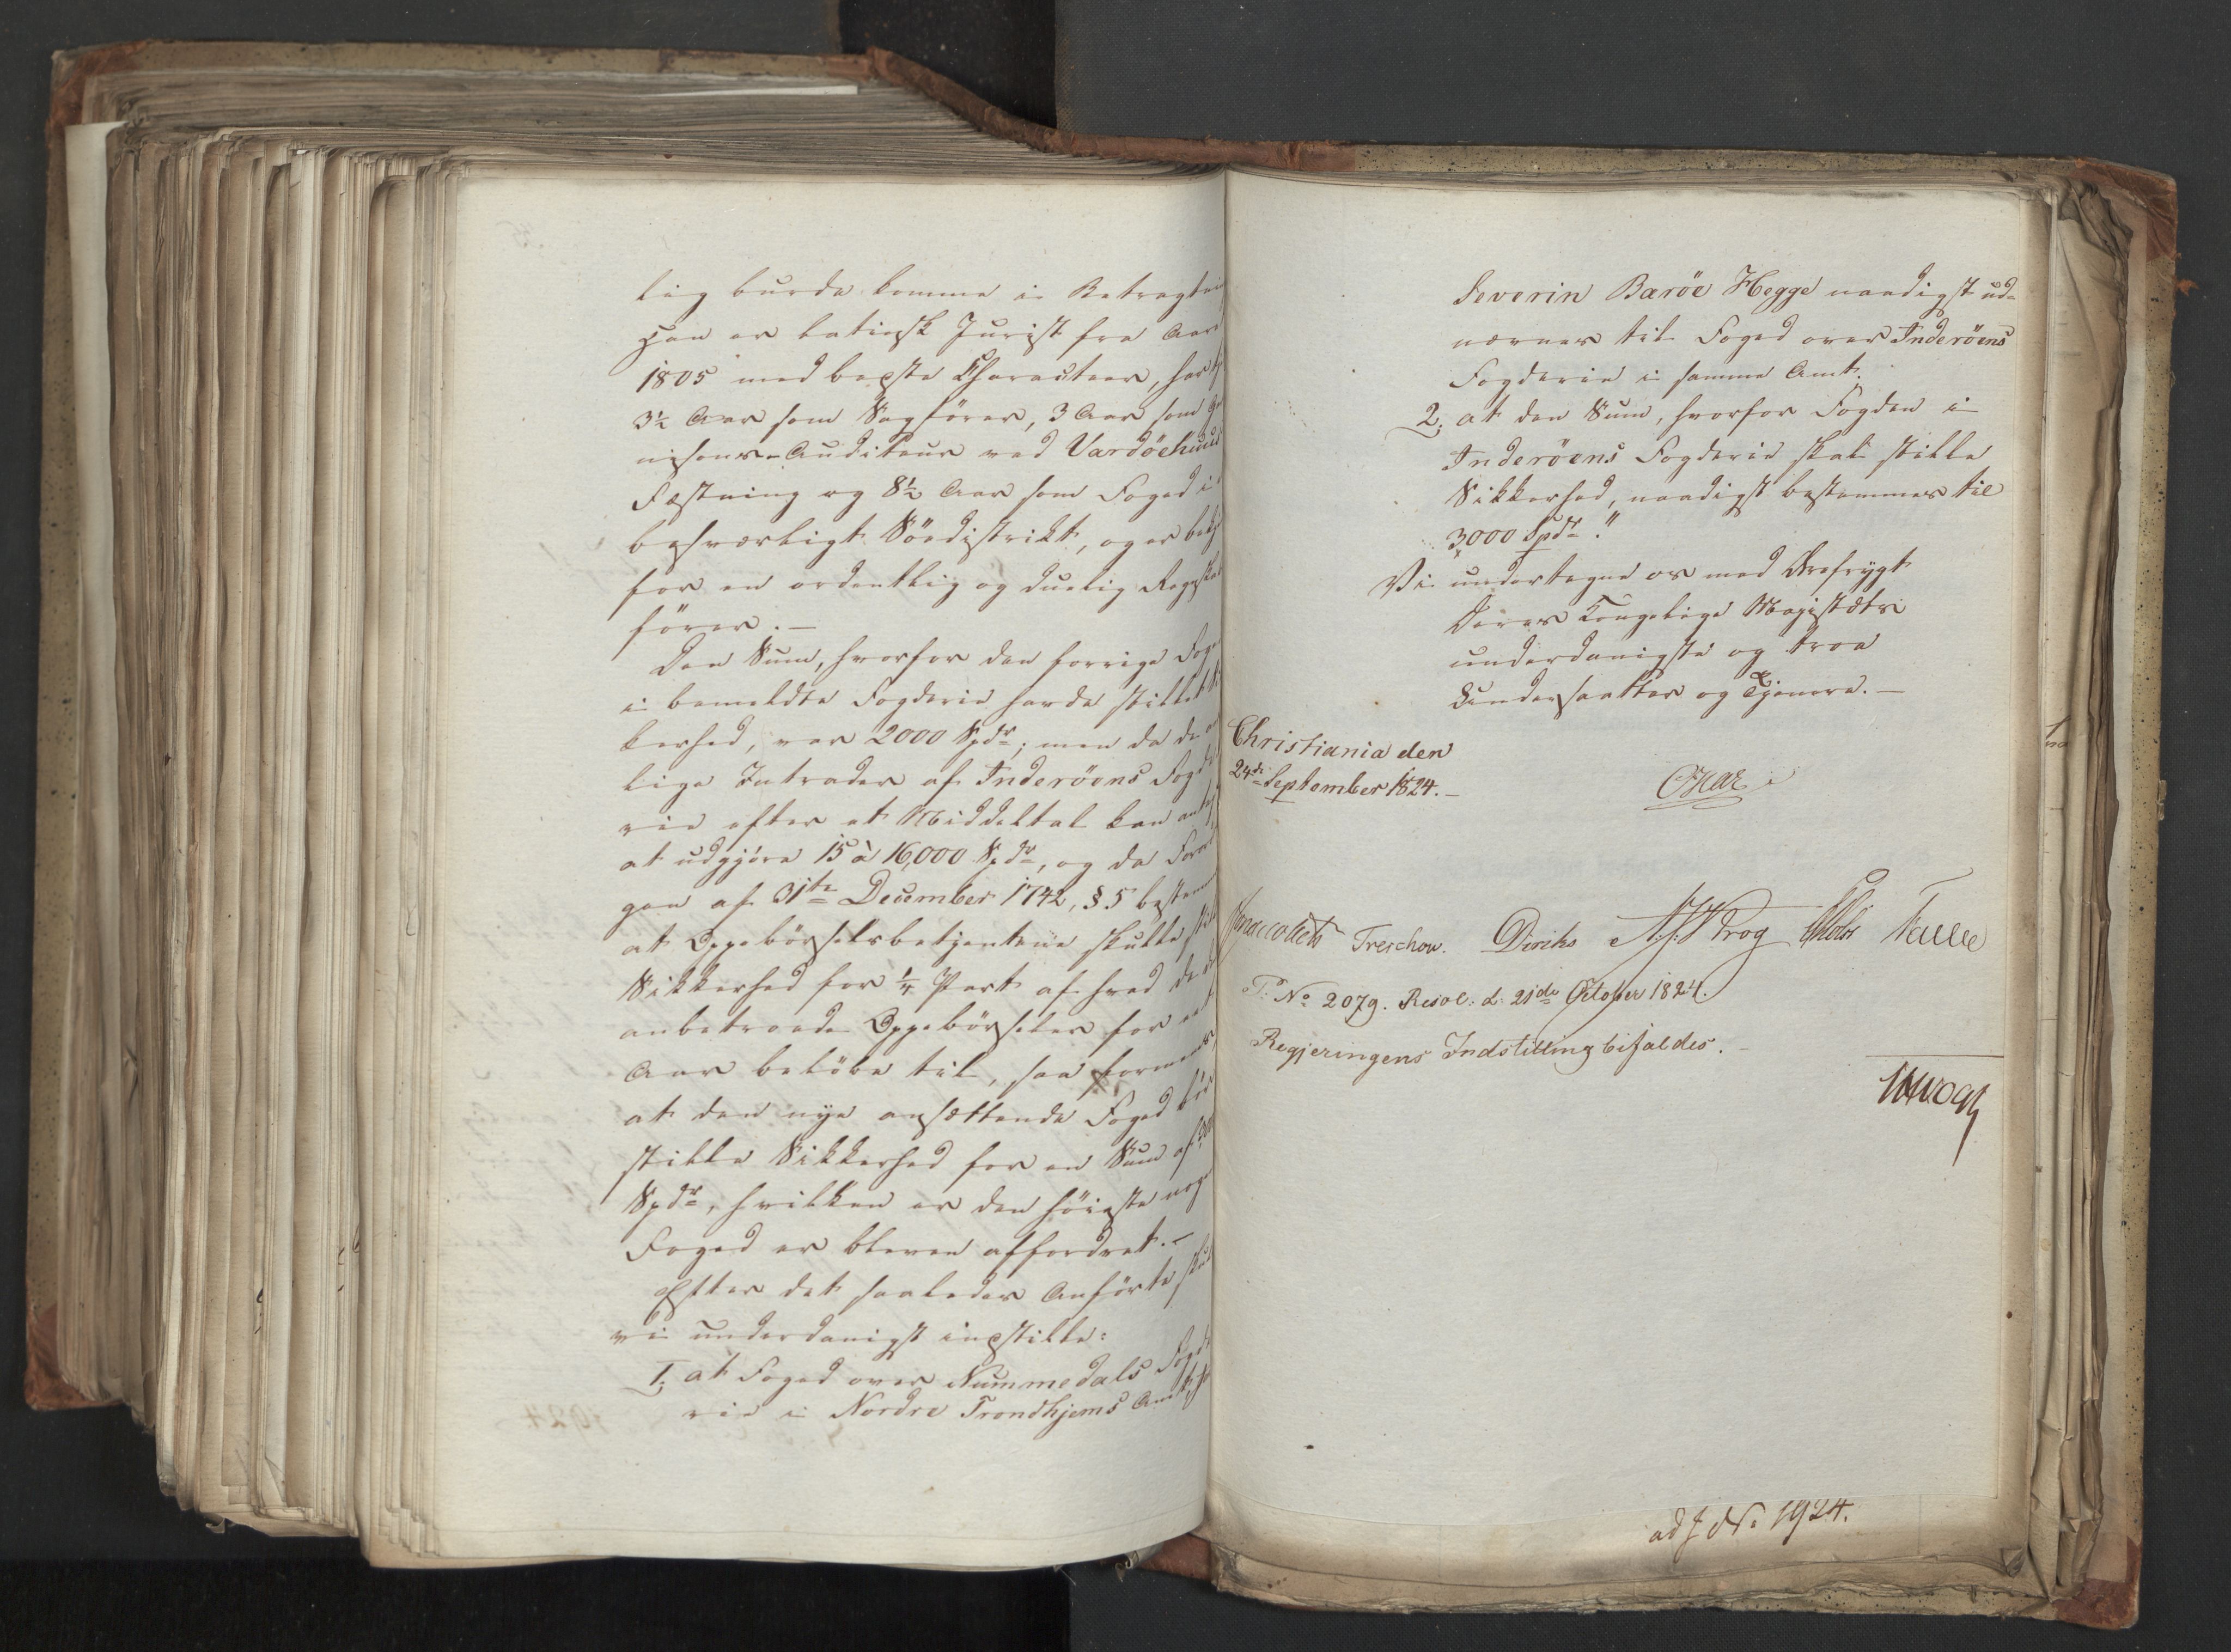 lig burde komme i Betragtni
Han er latinsk Jurist fra Aaret
1805 med bedste Characteer, har
3½ Aar som Sagfører, 3 Aar som
nisons-Auditeur ved Vardöehuus
Fæstning og 8½ Aar som Foged i
besværligt Södistrikt, og er bekj
for en ordentlig og duelig Regnskabs
förer. —
Den Sum, hvorfor den forrige Fog
i bemeldte Fogderie havde stillet Sik
kerhed, var 2000 Spdr; men da de
lige Intrader af Inderöens Fogde
rie efter et Middeltal kan
at udgjöre 15 à 16,000 Spdr, og da Forord
gen af 31te December 1742, §5 bestemmer
at Oppebörselsbetjentene skulle stille
Sikkerhed for ¼ Part af hvad de
anbetroede Oppebörseler for eet
Aar belöbe til, saa formenes,
at den nye ansættende Foged bör
stille Sikkerhed for en Sum af
Spdr, hvilken er den höieste nogen
Foged er bleven affordret. —
Efter det saaledes Anförte skul
vi underdanigst indstille:
1, at Foged over Nummedals Fogde
rie i Nordre Trondhjems Amt
Severin Baröe Hegge naadigst ud-
nævnes til Foged over Inderöens
Fogderie i samme Amt.
2, at den Sum, hvorfor Fogden i
Inderöens Fogderie skal stille
Sikkerhed, naadigst bestemmes til
3,000 Spdr."
Vi undertegne os med Ærefrygt
Deres Kongelige Majestæts
underdanigste og troe
Undersaatter og Tjenere. —
Christiania den
24de September 1824. —
Jonas Collett Treschow. Diriks Krog Fasting
T: No 2079. Resol: d: 21de October 1824.
Regjeringens Indstilling bifaldes. —
ad J No 1924.